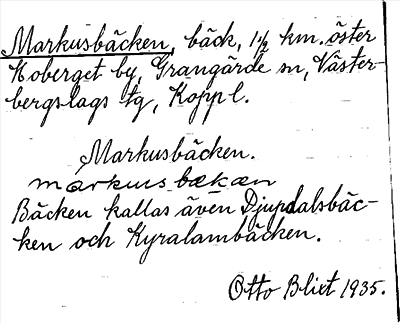 Markusbäcken, bäck, 1 1/2 km. öster
Hoberget by, Grangärde sn, Väster-
bergslags tg, Koppl.
Markusbäcken.
markus bækæn
Bäcken kallas även Djupdalsbäc-
ken och Kyralambäcken.
Otto Blixt 1935.